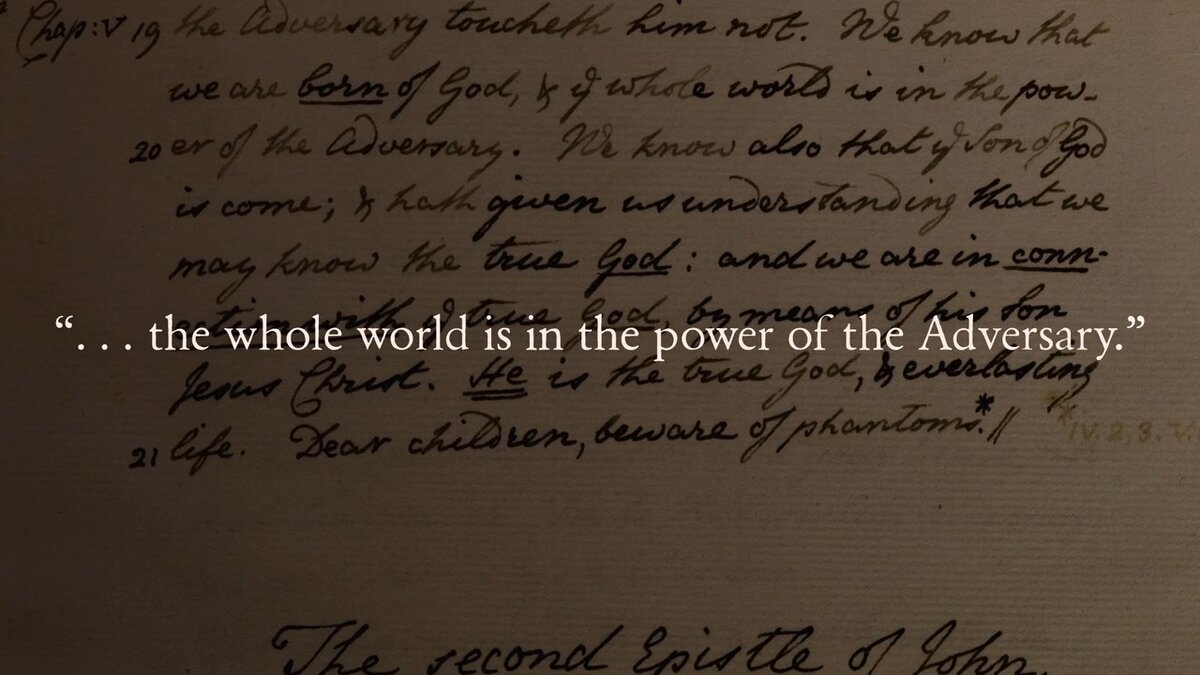 Chap: V 19 the Adversary toucheth him not. We know that
we are born of God, & yͤ whole world is in the pow-
20 er of the Adversary. We know also that yͤ Son of God
is come; & hath given us understanding that we
may know the true God: and we are in conn-
ection with yͤ true God, by means of his Son
“. . . the whole world is in the power of the Adversary.”
Jesus Christ. He is the true God, & everlasting
21 life. Dear children, beware of phantoms.* //
* IV. 2, 3. V.
The second Epistle of John.